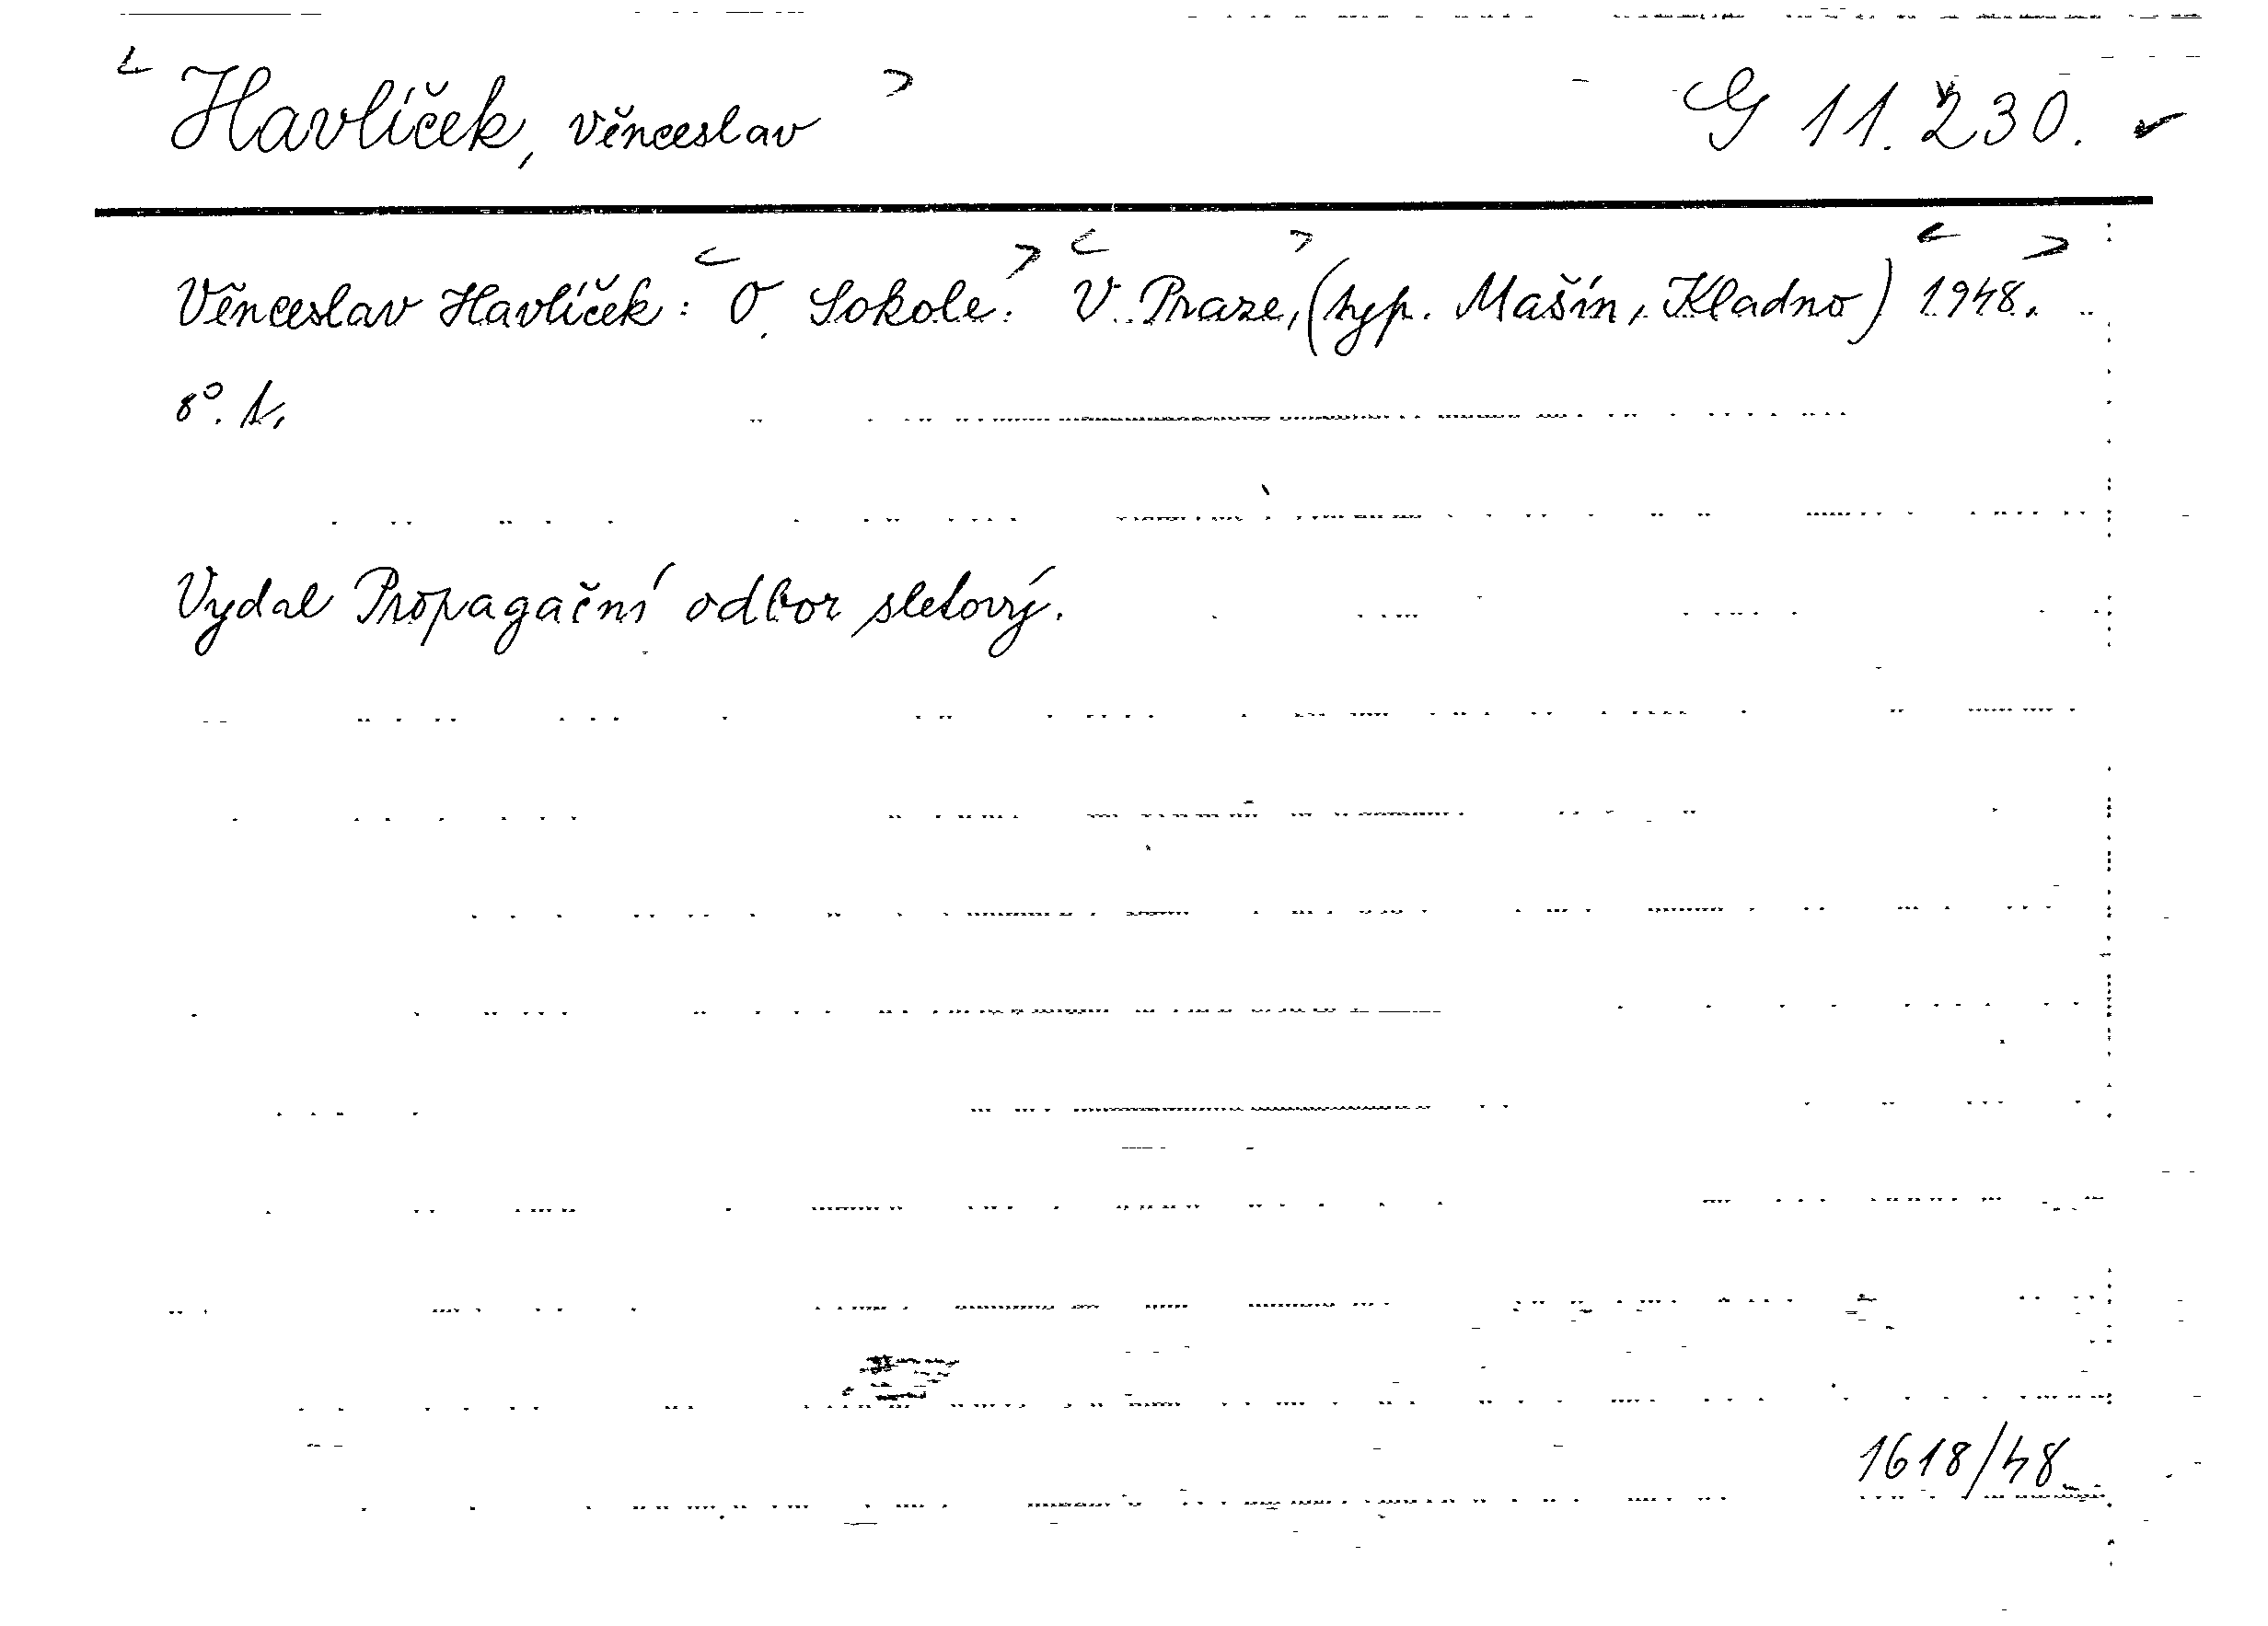 Havlíček, Věnceslav G 11.230.
Věnceslav Havlíček: O Sokole. V Praze, (typ. Mašín, Kladno) 1948.
8°. 1.
Vydal Propagační odbor sletový.
1618/48